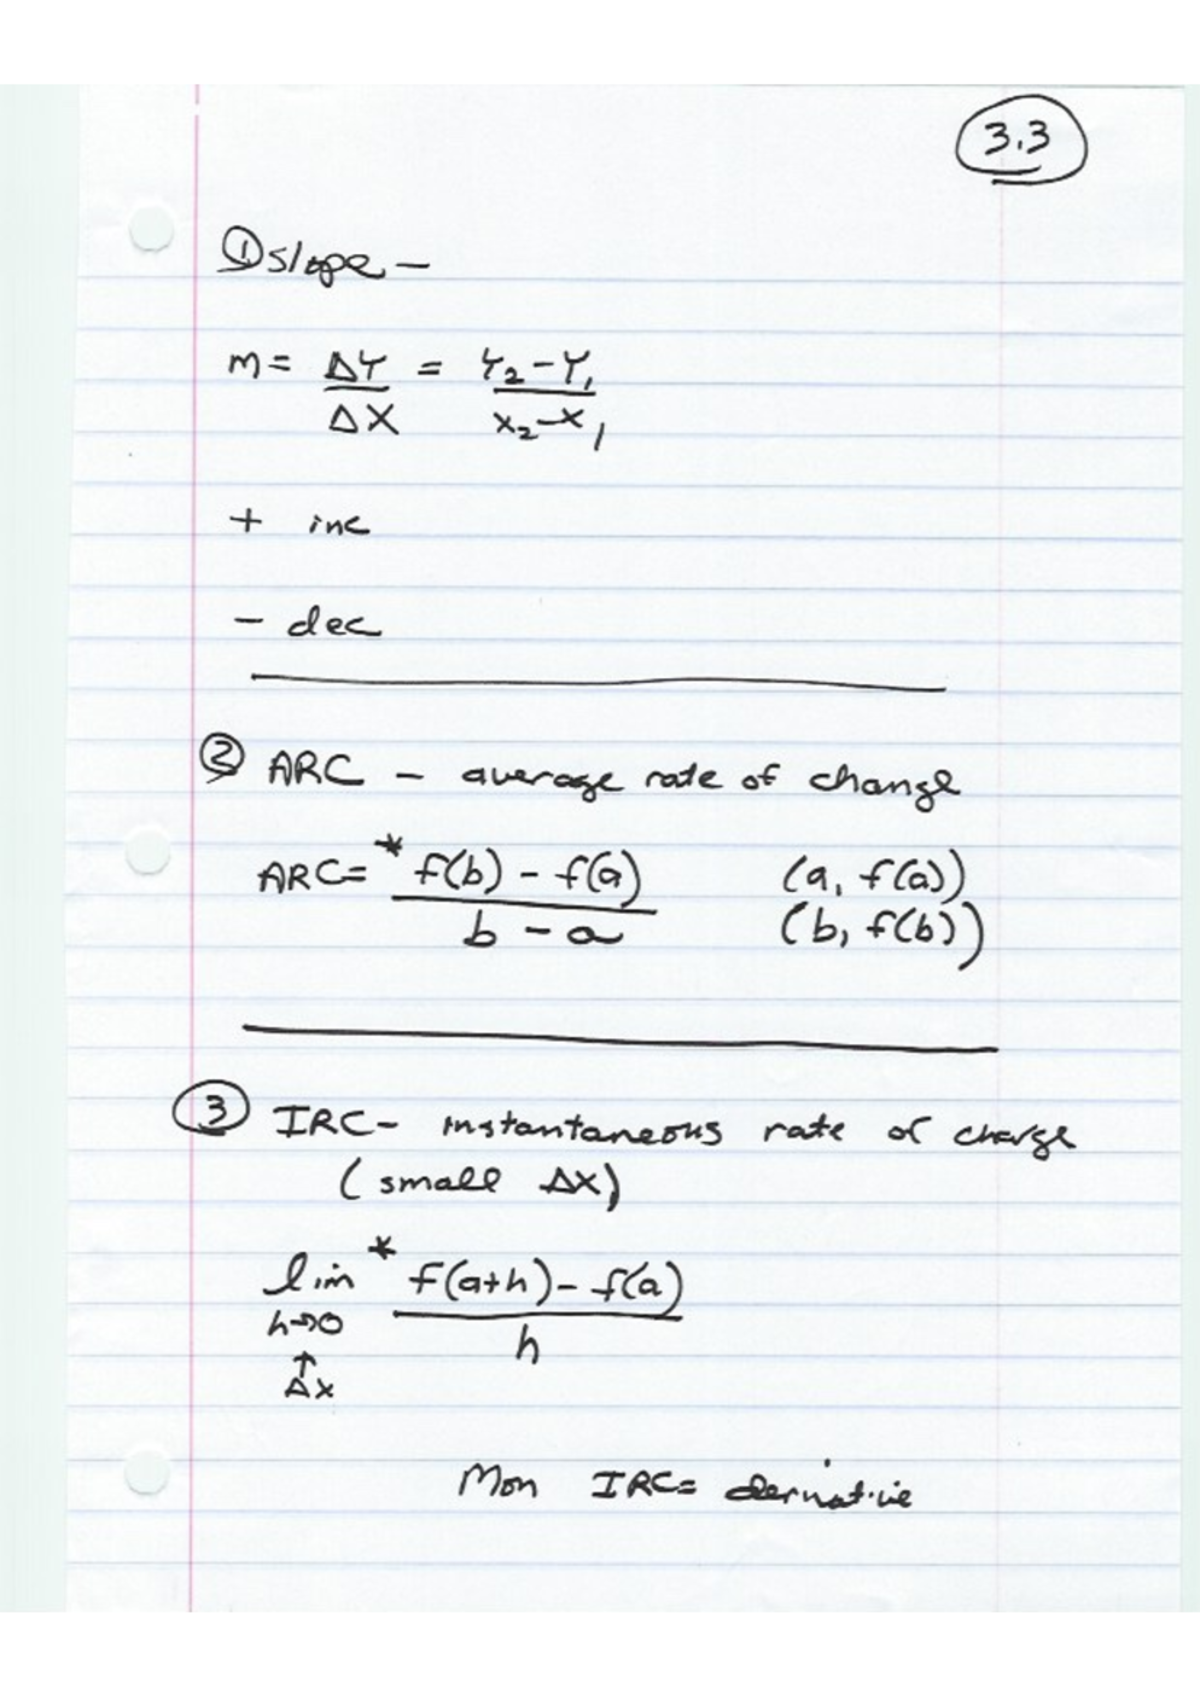 3.3
① slope –
m = ΔY = Y₂ – Y₁
ΔX X₂ – X₁
+ inc
– dec
② ARC – average rate of change
ARC = * f(b) – f(a) (a, f(a))
b – a (b, f(b))
③ IRC – instantaneous rate of change
(small ΔX)
lim * f(a+h) – f(a)
h→0 h
↑
Δx
Mon IRC = derivative